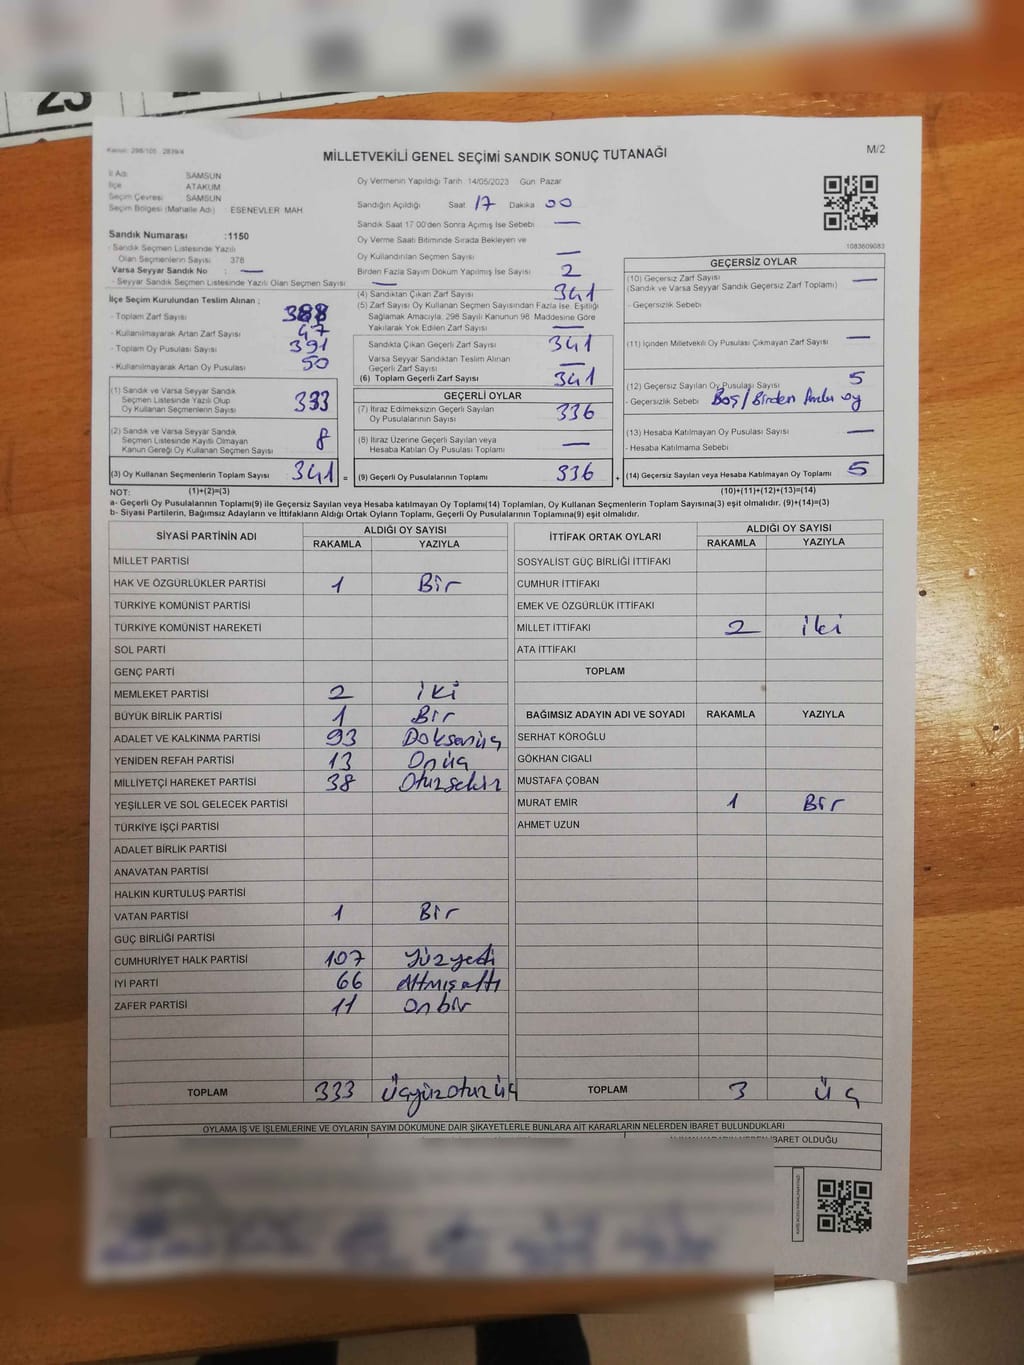 23
Kanun: 298/105 2839/4
MİLLETVEKİLİ GENEL SEÇİMİ SANDIK SONUÇ TUTANAĞI
M/2
İl Adı SAMSUN
İlçe ATAKUM
Seçim Çevresi SAMSUN
Seçim Bölgesi (Mahalle Adı) ESENEVLER MAH
Sandık Numarası :1150
- Sandık Seçmen Listesinde Yazılı
Olan Seçmenlerin Sayısı 378
Varsa Seyyar Sandık No : —
- Seyyar Sandık Seçmen Listesinde Yazılı Olan Seçmen Sayısı —
Oy Vermenin Yapıldığı Tarih 14/05/2023 Gün Pazar
Sandığın Açıldığı Saat 17 Dakika 00
Sandık Saat 17 00'den Sonra Açımış İse Sebebi —
Oy Verme Saati Bitiminde Sırada Bekleyen ve
Oy Kullandırılan Seçmen Sayısı —
Birden Fazla Sayım Döküm Yapılmış İse Sayısı 2
1083609083
İlçe Seçim Kurulundan Teslim Alınan ;
- Toplam Zarf Sayısı 388
- Kullanılmayarak Artan Zarf Sayısı 47
- Toplam Oy Pusulası Sayısı 391
- Kullanılmayarak Artan Oy Pusulası 50
(1) Sandık ve Varsa Seyyar Sandık
Seçmen Listesinde Yazılı Olup
Oy Kullanan Seçmenlerin Sayısı 333
(2) Sandık ve Varsa Seyyar Sandık
Seçmen Listesinde Kayıtlı Olmayan
Kanun Gereği Oy Kullanan Seçmenlerin Sayısı 8
(3) Oy Kullanan Seçmenlerin Toplam Sayısı 341 =
(4) Sandıktan Çıkan Zarf Sayısı 341
(5) Zarf Sayısı Oy Kullanan Seçmen Sayısından Fazla İse, Eşitliği
Sağlamak Amacıyla, 298 Sayılı Kanunun 98. Maddesine Göre
Yakılarak Yok Edilen Zarf Sayısı —
Sandıkta Çıkan Geçerli Zarf Sayısı 341
Varsa Seyyar Sandıktan Teslim Alınan
Geçerli Zarf Sayısı —
(6) Toplam Geçerli Zarf Sayısı 341
GEÇERLİ OYLAR
(7) İtiraz Edilmeksizin Geçerli Sayılan
Oy Pusulalarının Sayısı 336
(8) İtiraz Üzerine Geçerli Sayılan veya
Hesaba Katılan Oy Pusulası Toplamı —
(9) Geçerli Oy Pusulalarının Toplamı 336 +
GEÇERSİZ OYLAR
(10) Geçersiz Zarf Sayısı —
(Sandık ve Varsa Seyyar Sandık Geçersiz Zarf Toplamı)
- Geçersizlik Sebebi
(11) İçinden Milletvekili Oy Pusulası Çıkmayan Zarf Sayısı —
(12) Geçersiz Sayılan Oy Pusulası Sayısı 5
- Geçersizlik Sebebi Boş/Birden fazla oy
(13) Hesaba Katılmayan Oy Pusulası Sayısı —
- Hesaba Katılmama Sebebi
(14) Geçersiz Sayılan veya Hesaba Katılmayan Oy Toplamı 5
NOT: (1)+(2)=(3) (10)+(11)+(12)+(13)=(14)
a- Geçerli Oy Pusulalarının Toplamı(9) ile Geçersiz Sayılan veya Hesaba katılmayan Oy Toplamı(14) Toplamları, Oy Kullanan Seçmenlerin Toplam Sayısına(3) eşit olmalıdır. (9)+(14)=(3)
b- Siyasi Partilerin, Bağımsız Adayların ve İttifakların Aldığı Ortak Oyların Toplamı, Geçerli Oy Pusulalarının Toplamına(9) eşit olmalıdır.
SİYASİ PARTİNİN ADI ALDIĞI OY SAYISI
RAKAMLA YAZIYLA
MİLLET PARTİSİ
HAK VE ÖZGÜRLÜKLER PARTİSİ 1 Bir
TÜRKİYE KOMÜNİST PARTİSİ
TÜRKİYE KOMÜNİST HAREKETİ
SOL PARTİ
GENÇ PARTİ
MEMLEKET PARTİSİ 2 iki
BÜYÜK BİRLİK PARTİSİ 1 Bir
ADALET VE KALKINMA PARTİSİ 93 Doksanüç
YENİDEN REFAH PARTİSİ 13 Onüç
MİLLİYETÇİ HAREKET PARTİSİ 38 Otuzsekiz
YEŞİLLER VE SOL GELECEK PARTİSİ
TÜRKİYE İŞÇİ PARTİSİ
ADALET BİRLİK PARTİSİ
ANAVATAN PARTİSİ
HALKIN KURTULUŞ PARTİSİ
VATAN PARTİSİ 1 Bir
GÜÇ BİRLİĞİ PARTİSİ
CUMHURİYET HALK PARTİSİ 107 Yüzyedi
İYİ PARTİ 66 Altmışaltı
ZAFER PARTİSİ 11 Onbir
TOPLAM 333 Üçyüzotuzüç
İTTİFAK ORTAK OYLARI ALDIĞI OY SAYISI
RAKAMLA YAZIYLA
SOSYALİST GÜÇ BİRLİĞİ İTTİFAKI
CUMHUR İTTİFAKI
EMEK VE ÖZGÜRLÜK İTTİFAKI
MİLLET İTTİFAKI 2 iki
ATA İTTİFAKI
TOPLAM
BAĞIMSIZ ADAYIN ADI VE SOYADI RAKAMLA YAZIYLA
SERHAT KÖROĞLU
GÖKHAN CIGALI
MUSTAFA ÇOBAN
MURAT EMİR 1 Bir
AHMET UZUN
TOPLAM 3 Üç
OYLAMA İŞ VE İŞLEMLERİNE VE OYLARIN SAYIM DÖKÜMÜNE DAİR ŞİKAYETLERLE BUNLARA AİT KARARLARIN NELERDEN İBARET BULUNDUKLARI
İBARET OLDUĞU